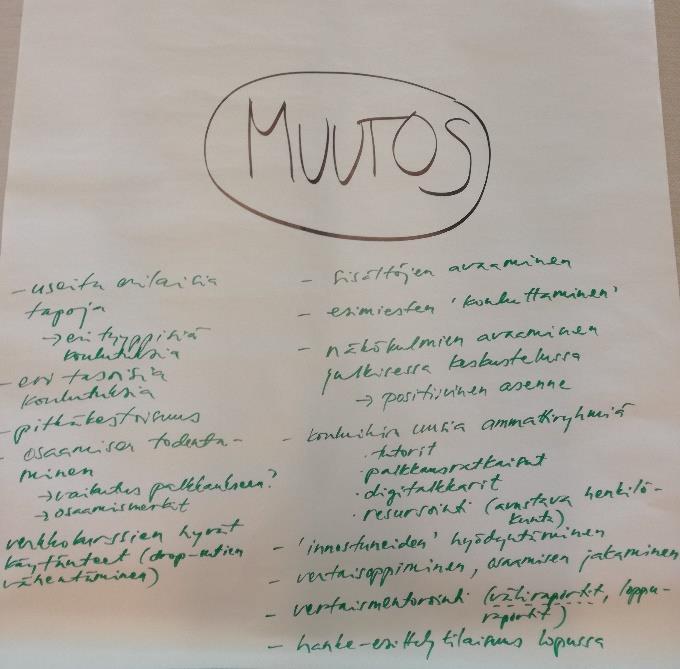 MUUTOS
- useita erilaisia
tapoja
→ eri tyyppisiä
koulutuksia
- eri tasoisia
koulutuksia
- pitkäkestoisuus
- osaamisen todenta-
minen
→ vaikutus palkkaukseen?
→ osaamismerkit
verkkokurssien hyvät
käytänteet (drop-outien
vähentäminen)
- sisältöjen avaaminen
- esimiesten 'kouluttaminen'
- näkökulmien avaaminen
julkisessa keskustelussa
→ positiivinen asenne
- kouluihin uusia ammattiryhmiä
· tutorit
· palkkausratkaisut
· digitalkkarit
· resursointi (avustava henkilö-
kunta)
- 'innostuneiden' hyödyntäminen
- vertaisoppiminen, osaamisen jakaminen
- vertaismentorointi (väliraportit, loppu-
raportit)
- hanke-esittelytilaisuus lopussa